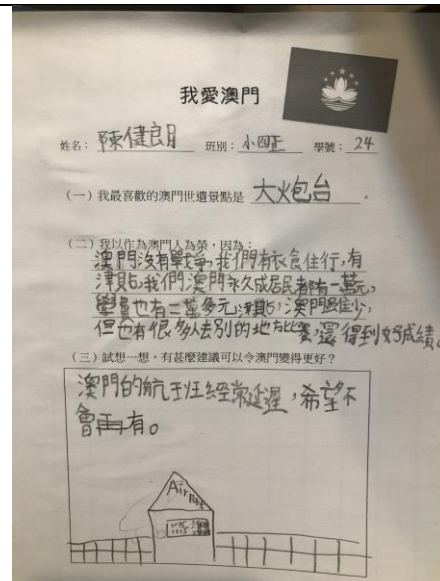 我愛澳門
姓名：陳健朗 班別：小四正 學號：24
（一）我最喜歡的澳門世遺景點是 大火包台 。
（二）我以作為澳門人為榮，因為：
澳門沒有戰爭，我們有衣食住行，有
津貼，我們澳門永久成居民都有一萬元，
學費也有二萬多元津貼，澳門雖少，
但也有很多人去別的地比賽，還得到好成績。
（三）試想一想，有甚麼建議可以令澳門變得更好？
澳門的航班經常延遲，希望不
會再有。
Airport